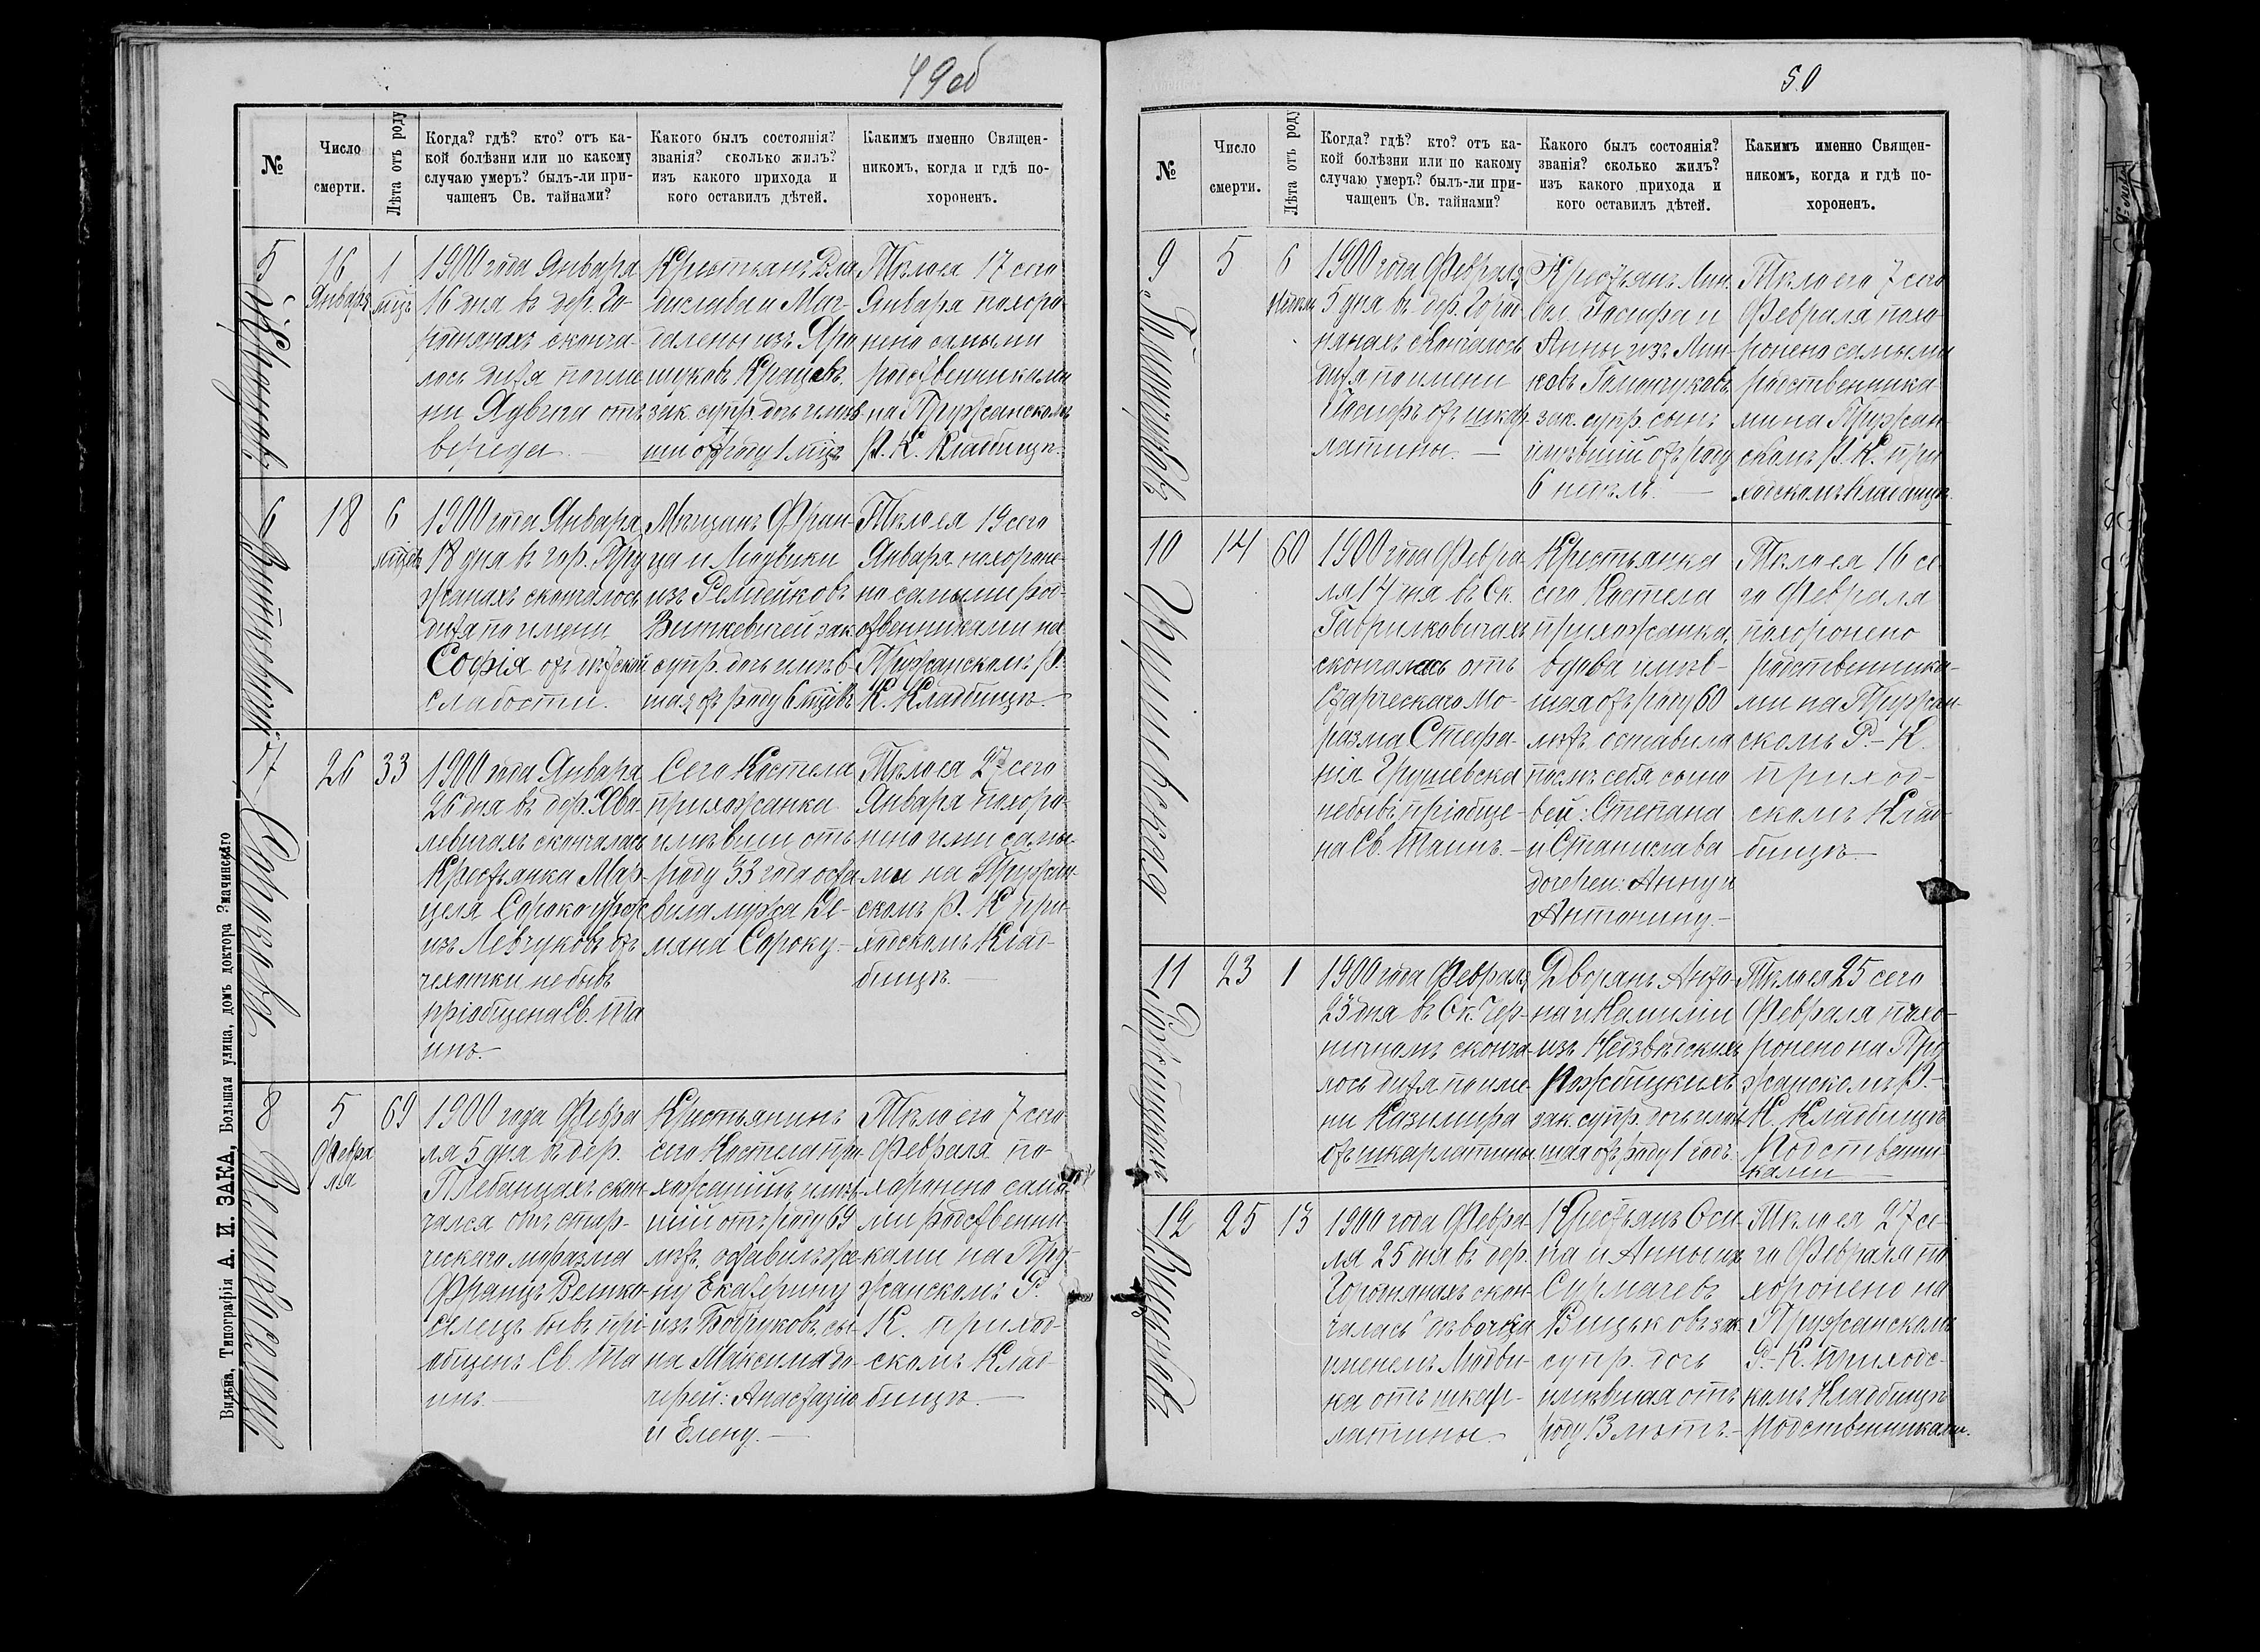 49об
№
Число
смерти.
Лѣта отъ роду
Когда? гдѣ? кто? отъ ка-
кой болѣзни или по какому
случаю умеръ? былъ-ли при-
чащенъ Св. тайнами?
Какого былъ состоянія?
званія? сколько жилъ?
изъ какого прихода и
кого оставилъ дѣтей.
Какимъ именно Священ-
никомъ, когда и гдѣ по-
хороненъ.
5
16
Января
1
мцъ
1900 года Января
16 дня въ дер. Го-
роднянахъ сконча-
лось дитя по име
ни Ядвига отъ
вереда.
Крестьянъ Вла
дислава и Маг-
далены изъ Яро
шуковъ
зак. супр. дочь имѣв
ши отъ роду 1 мцъ
Тѣло ея 17 сего
Января похоро-
нено самыми
родственниками
на Пружанскомъ
Р. К. Кладбищѣ.
6
18
6
мцевъ
1900 года Января
18 дня въ гор. Пру
жанахъ скончалось
дитя по имени
Софія отъ дѣтской
слабости.
Мѣщанъ Фран-
ца и Людвики
изъ
Виткевичей зак.
супр. дочь имѣв-
шая отъ роду 6 мцевъ
Тѣло ея 19 сего
Января похороне-
но самыми род-
ственниками на
Пружанскомъ Р.
К. Кладбищѣ.
7
26
33
1900 года Января
26 дня въ дер. Хва
левичахъ скончалась
Крестьянка Мар-
целя Сорока урож
изъ Левчуковъ отъ
чахотки не бывъ
пріобщена Св. Та
инъ.
Сего Костела
прихожанка
имѣвши отъ
роду 33 года оста
вила мужа
Сороку.
Тѣло ея 27 сего
Января похоро-
нено ими самы-
ми на Пружан-
скомъ Р. К. при-
ходскомъ Клад-
бищѣ.
8
5
Февра
ля
69
1900 года Февра
ля 5 дня въ дер.
Плебанцахъ скон
чался отъ стар-
ческаго моразма
Францъ Велико
селецъ бывъ прі
общенъ Св. Та
инъ.
Крестьянинъ
сего Костела при-
хожанинъ имѣв-
ший отъ роду 69
лѣтъ, оставилъ же-
ну Екатерину
изъ Бобруковъ, сы-
на Максима до-
черей: Анастазію
и Елену.
Тѣло его 7 сего
Февраля по-
хоронено самы-
ми родственни
ками на Пру-
жанскомъ Р.
К. приход-
скомъ Клад-
бищѣ.
Вильна, Типографія А. И. ЗАКА, Большая улица, домъ доктора Змачинскаго
50
№
Число
смерти.
Лѣта отъ роду
Когда? гдѣ? кто? отъ ка-
кой болѣзни или по какому
случаю умеръ? былъ-ли при-
чащенъ Св. тайнами?
Какого былъ состоянія?
званія? сколько жилъ?
изъ какого прихода и
кого оставилъ дѣтей.
Какимъ именно Священ-
никомъ, когда и гдѣ по-
хороненъ.
9
5
6
недѣль
1900 года Февраля
5 дня въ дер. Город
нянахъ скончалось
дитя по имени
Іосифъ отъ шкар-
латины.
Крестьянъ
Іосифа и
Анны изъ
Гапанчуковъ
зак. супр. сынъ
имѣвшій отъ роду
6 недѣль.
Тѣло его 7 сего
Февраля похо-
ронено самыми
родственника-
ми на Пружан-
скомъ Р. К. при
ходскомъ Кладбищѣ.
10 Грушевская
14
60
1900 года Февра
ля 14 дня въ Ок.
Гаврилковичахъ
скончалась отъ
Старческаго Мо-
разма Стефа-
нія Грушевска
не бывъ пріобще-
на Св. Таинъ.
Крестьянка
сего Костела
прихожанка,
вдова имѣв-
шая отъ роду 60
лѣтъ оставила
послѣ себя сыно
вей: Степана
и Станислава
дочерей: Анну и
Антонину.
Тѣло ея 16 се-
го Февраля
похоронено
родственника-
ми на Пружан-
скомъ Р.-К.
приход-
скомъ Клад-
бищѣ.
11
23
1
1900 года Февраля
23 дня въ Ок. Чер-
ничномъ сконча-
лось дитя по име-
ни Казимира
отъ шкарлатины
Дворянъ Анто-
на и Камиліи
изъ Недзвѣдскихъ
зак. супр. дочь имѣв
шая отъ роду 1 годъ.
Тѣло ея 25 сего
Февраля похо-
ронено на Пру
жанскомъ Р.-
К. Кладбищѣ
Родственни-
ками
12
25
13
1900 года Февра-
ля 25 дня въ дер.
Городнянахъ скон-
чалась дѣвочка
именемъ Людви-
ка отъ шкар-
латины.
Крестьянъ Оси-
па и Анны изъ
Сурмачевъ
зак.
супр. дочь
имѣвшая отъ
роду 13 лѣтъ.
Тѣло ея 27 се-
го Февраля по
хоронено на
Пружанскомъ
Р.-К. приходс-
комъ Кладбищѣ
Родственниками.